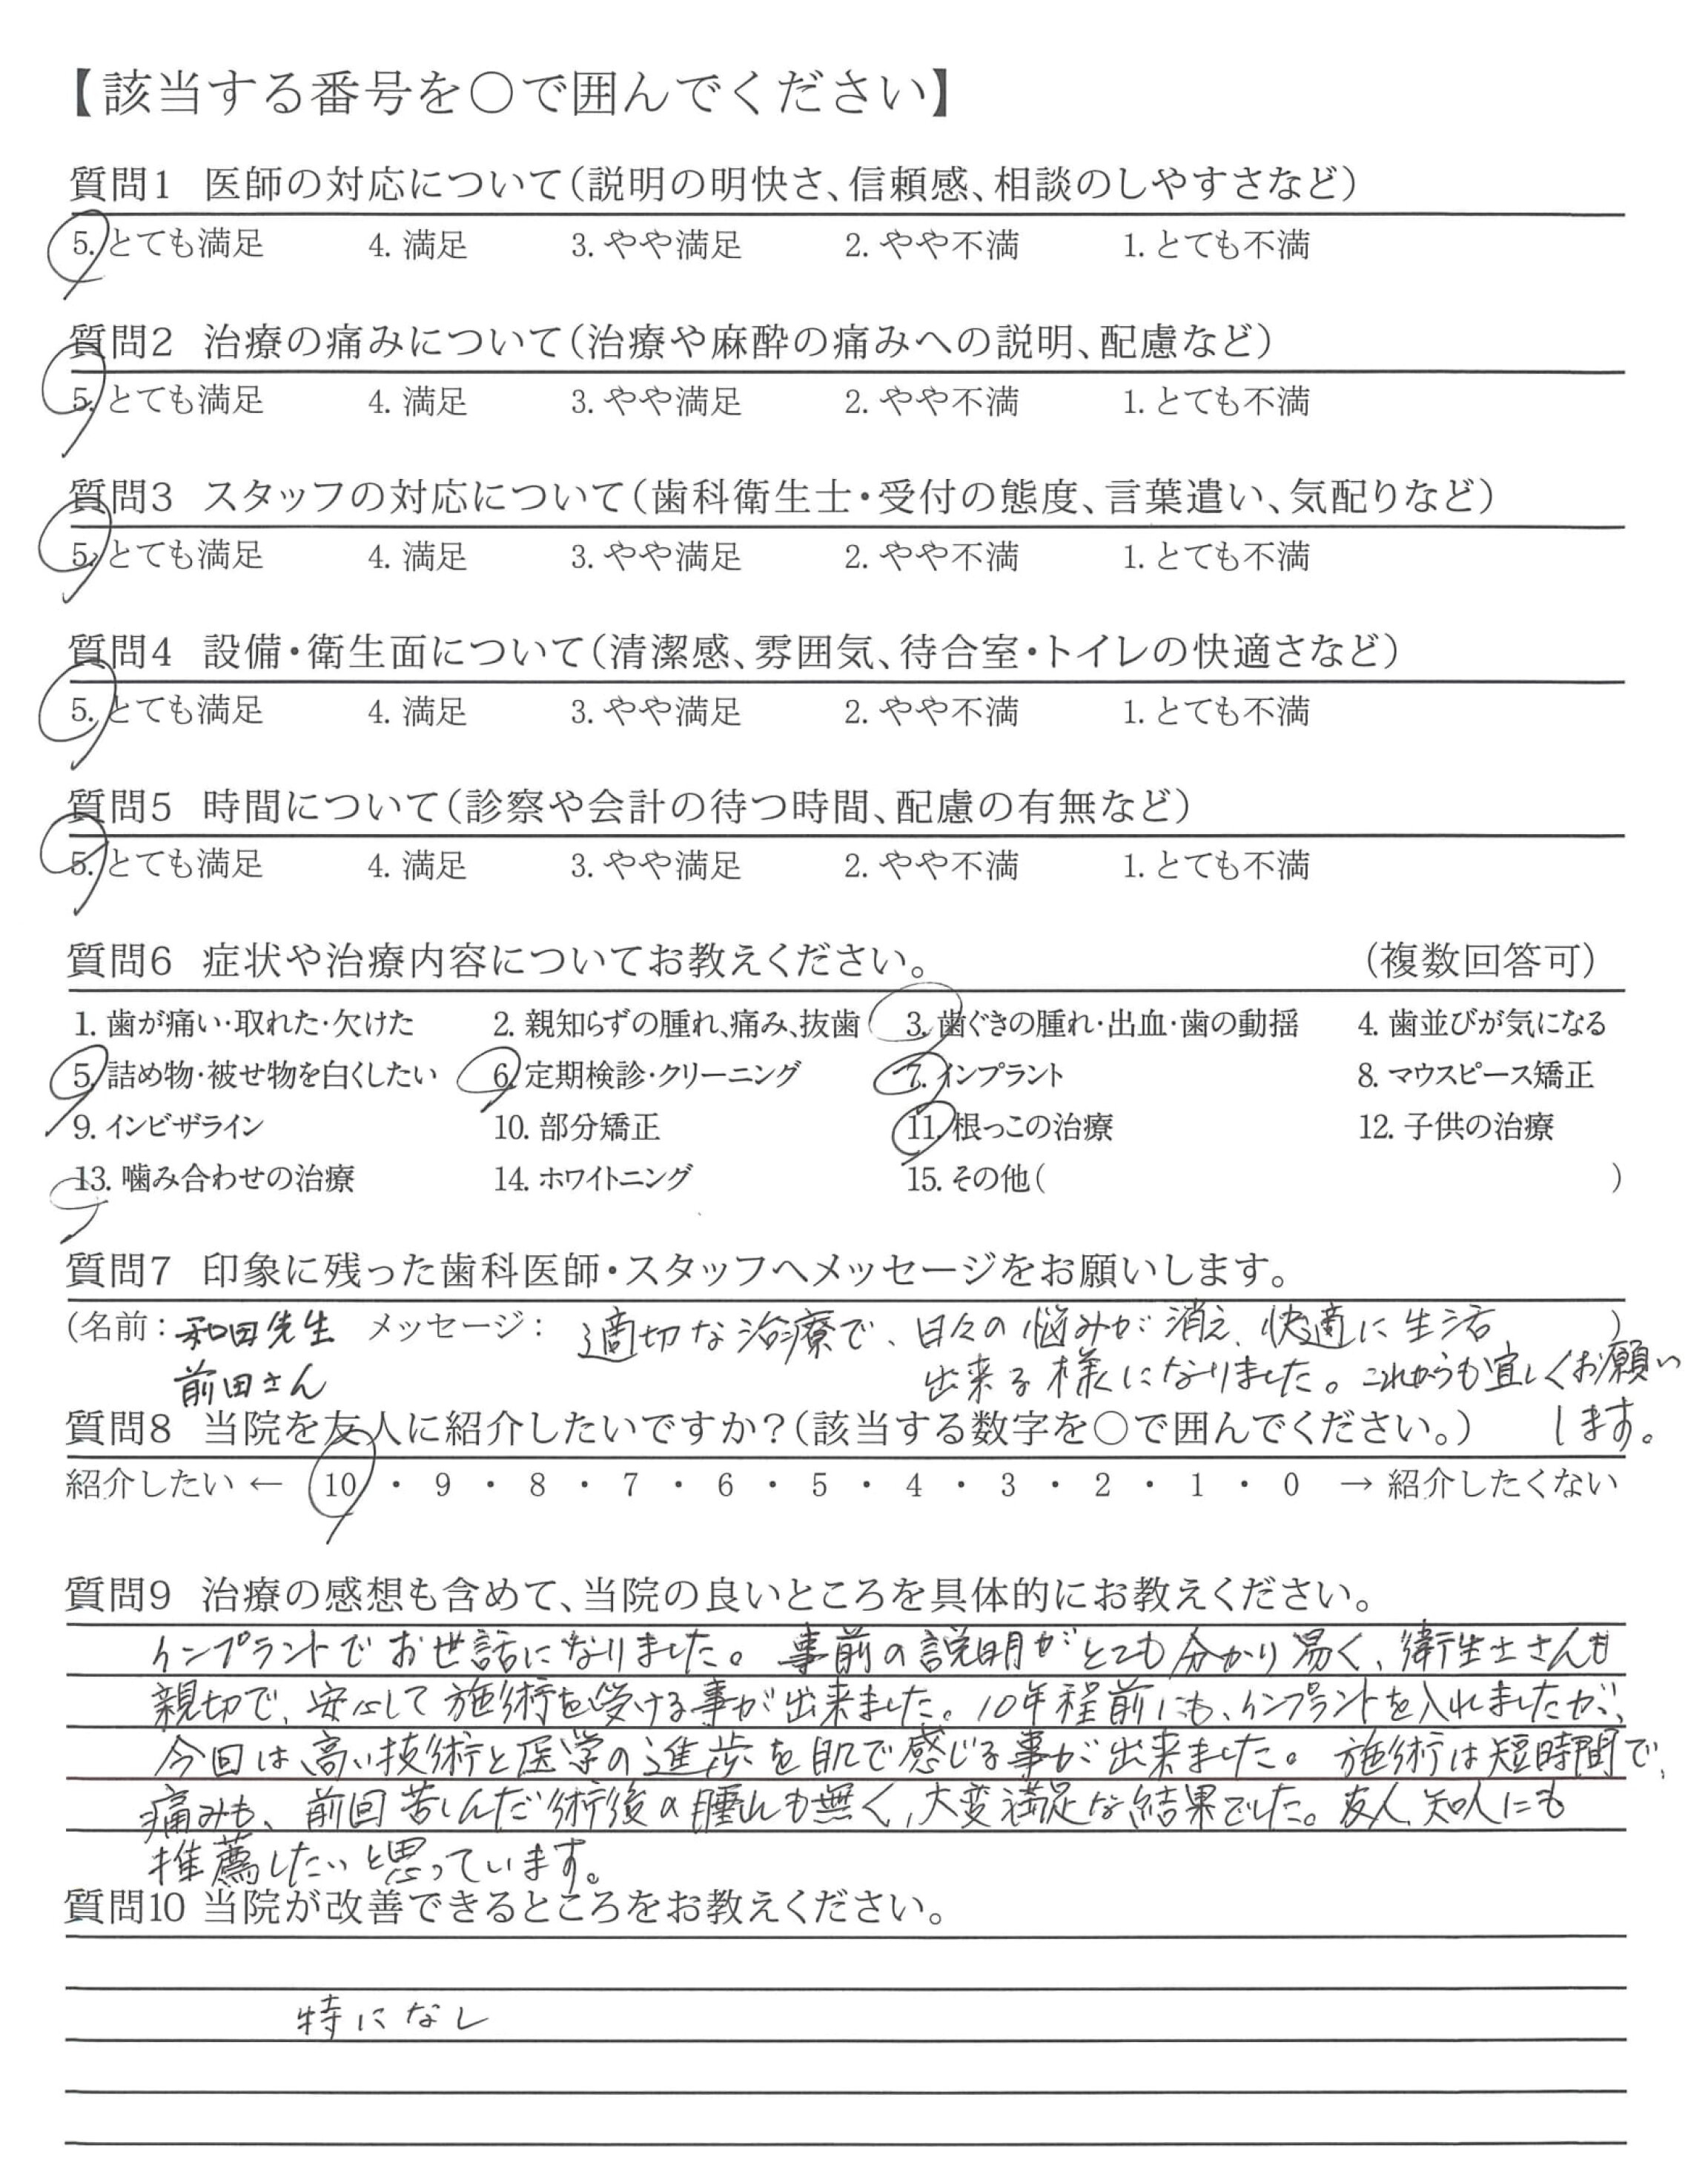 【該当する番号を○で囲んでください】
質問1 医師の対応について(説明の明快さ、信頼感、相談のしやすさなど)
5. とても満足 4. 満足 3. やや満足 2. やや不満 1. とても不満
質問2 治療の痛みについて(治療や麻酔の痛みへの説明、配慮など)
5. とても満足 4. 満足 3. やや満足 2. やや不満 1. とても不満
質問3 スタッフの対応について(歯科衛生士・受付の態度、言葉遣い、気配りなど)
5. とても満足 4. 満足 3. やや満足 2. やや不満 1. とても不満
質問4 設備・衛生面について(清潔感、雰囲気、待合室・トイレの快適さなど)
5. とても満足 4. 満足 3. やや満足 2. やや不満 1. とても不満
質問5 時間について(診察や会計の待つ時間、配慮の有無など)
5. とても満足 4. 満足 3. やや満足 2. やや不満 1. とても不満
質問6 症状や治療内容についてお教えください。 (複数回答可)
1. 歯が痛い・取れた・欠けた 2. 親知らずの腫れ、痛み、抜歯 3. 歯ぐきの腫れ・出血・歯の動揺 4. 歯並びが気になる
5. 詰め物・被せ物を白くしたい 6. 定期検診・クリーニング 7. インプラント 8. マウスピース矯正
9. インビザライン 10. 部分矯正 11. 根っこの治療 12. 子供の治療
13. 噛み合わせの治療 14. ホワイトニング 15. その他( )
質問7 印象に残った歯科医師・スタッフへメッセージをお願いします。
(名前：和田先生 メッセージ： 適切な治療で、日々の悩みが消え、快適に生活 )
前田さん 出来る様になりました。これからも宜しくお願い
質問8 当院を友人に紹介したいですか？(該当する数字を○で囲んでください。) します。
紹介したい ← 10 ・ 9 ・ 8 ・ 7 ・ 6 ・ 5 ・ 4 ・ 3 ・ 2 ・ 1 ・ 0 → 紹介したくない
質問9 治療の感想も含めて、当院の良いところを具体的にお教えください。
インプラントでお世話になりました。事前の説明がとても分かり易く、衛生士さんも
親切で、安心して施術を受ける事が出来ました。10年程前にも、インプラントを入れましたが、
今回は高い技術と医学の進歩を肌で感じる事が出来ました。施術は短時間で、
痛みも、前回苦しんだ術後の腫れも無く、大変満足な結果でした。友人、知人にも
推薦したいと思っています。
質問10 当院が改善できるところをお教えください。
特になし